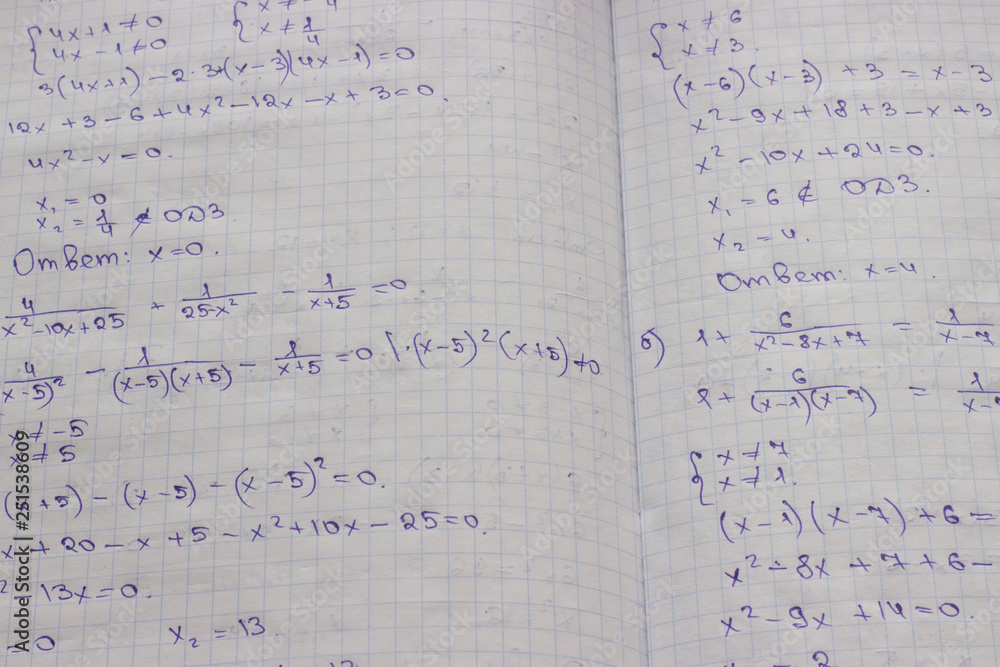 { 4x+1≠0
4x-1≠0
{ x≠-
x≠1/4
3(4x+1) - 2·3+(x-3)(4x-1)=0
12x+3-6+4x²-12x-x+3=0.
4x²-x=0.
x₁=0
x₂=1/4 ∉ ОДЗ
Ответ: x=0.
4/(x²-10x+25) + 1/(25-x²) - 1/(x+5) =0.
4/(x-5)² - 1/((x-5)(x+5)) - 1/(x+5) =0 |·(x-5)²(x+5)≠0
x≠-5
x≠5
+5) - (x-5) - (x-5)²=0.
x+20-x+5-x²+10x-25=0.
² 13x=0.
0 x₂=13.
{ x≠6
x≠3.
(x-6)(x-3) +3 = x-3
x²-9x+18+3-x+3
x²-10x+24=0.
x₁=6 ∉ ОДЗ.
x₂=4.
Ответ: x=4.
б) 1+ 6/(x²-8x+7) = 1/(x-7)
1+ 6/((x-1)(x-7)) = 1/(x-
{ x≠7
x≠1.
(x-1)(x-7)+6=
x²-8x+7+6-
x²-9x+14=0.
Adobe Stock | #251538609